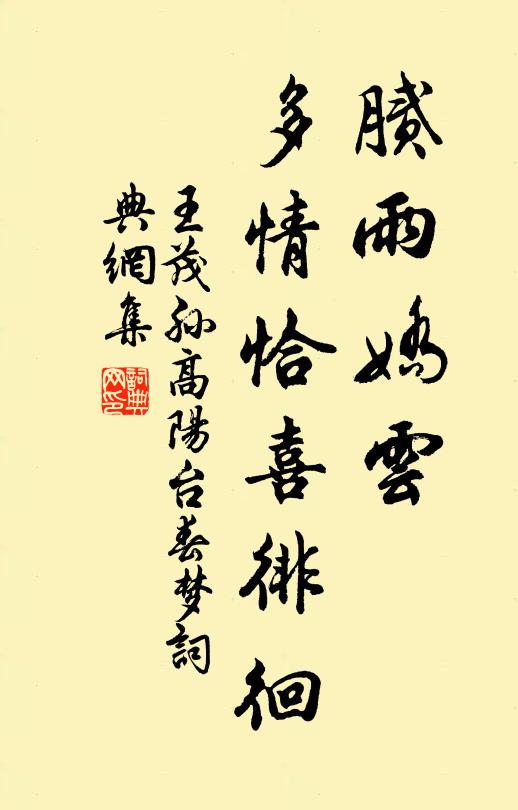 膩雨嬌雲
多情恰喜徘徊
王茂孫高陽台春梦詞
典網集
詞典
网印